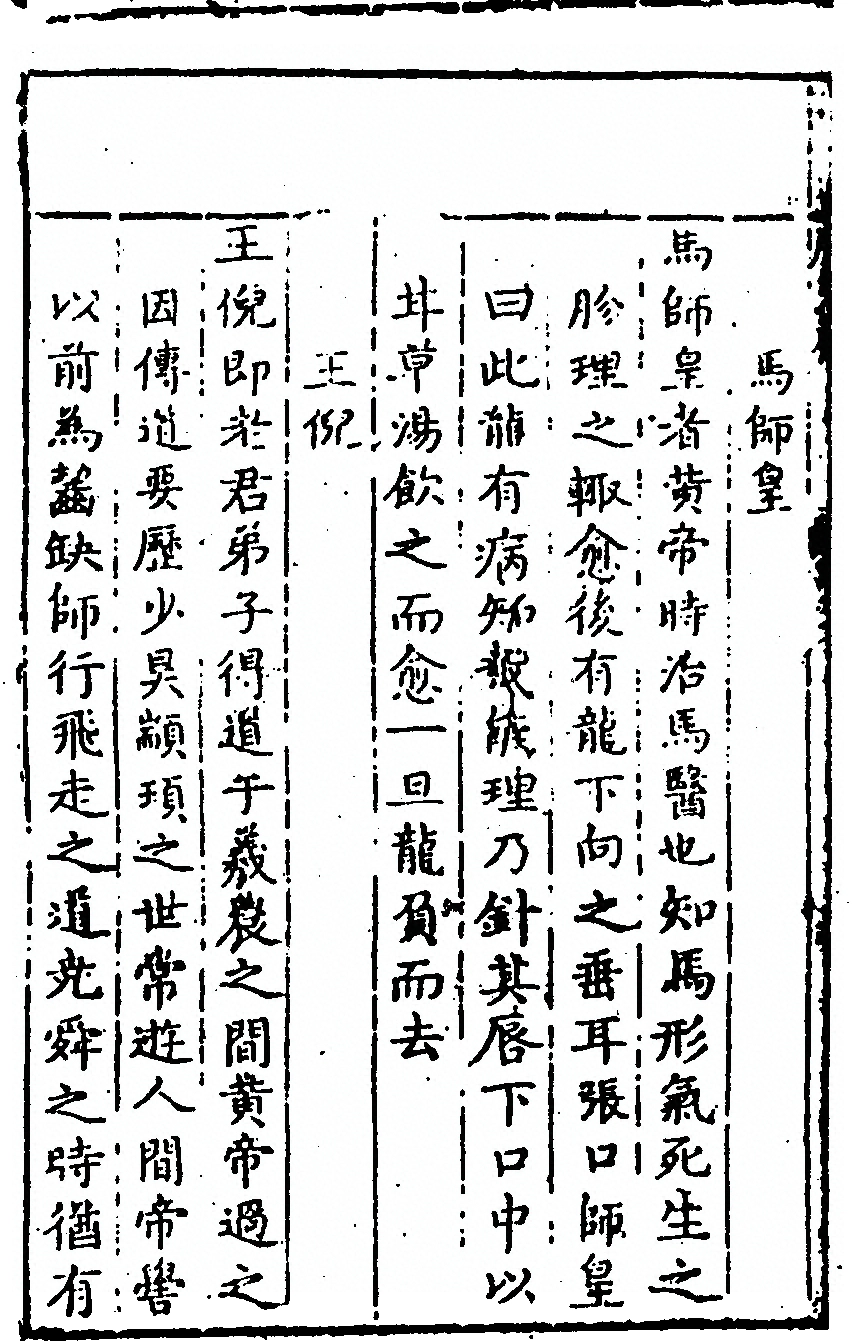 馬師皇
馬師皇者黄帝時治馬醫也知馬形氣死生之
胗理之輙愈後有龍下向之垂耳張口師皇
曰此龍有病知我能理乃針其唇下口中以
甘草湯飲之而愈一旦龍負而去
王倪
王倪即老君弟子得道于羲農之間黄帝遇之
因傳道要歷少昊顓頊之世常遊人間帝嚳
以前為齧缺師行飛走之道堯舜之時猶有